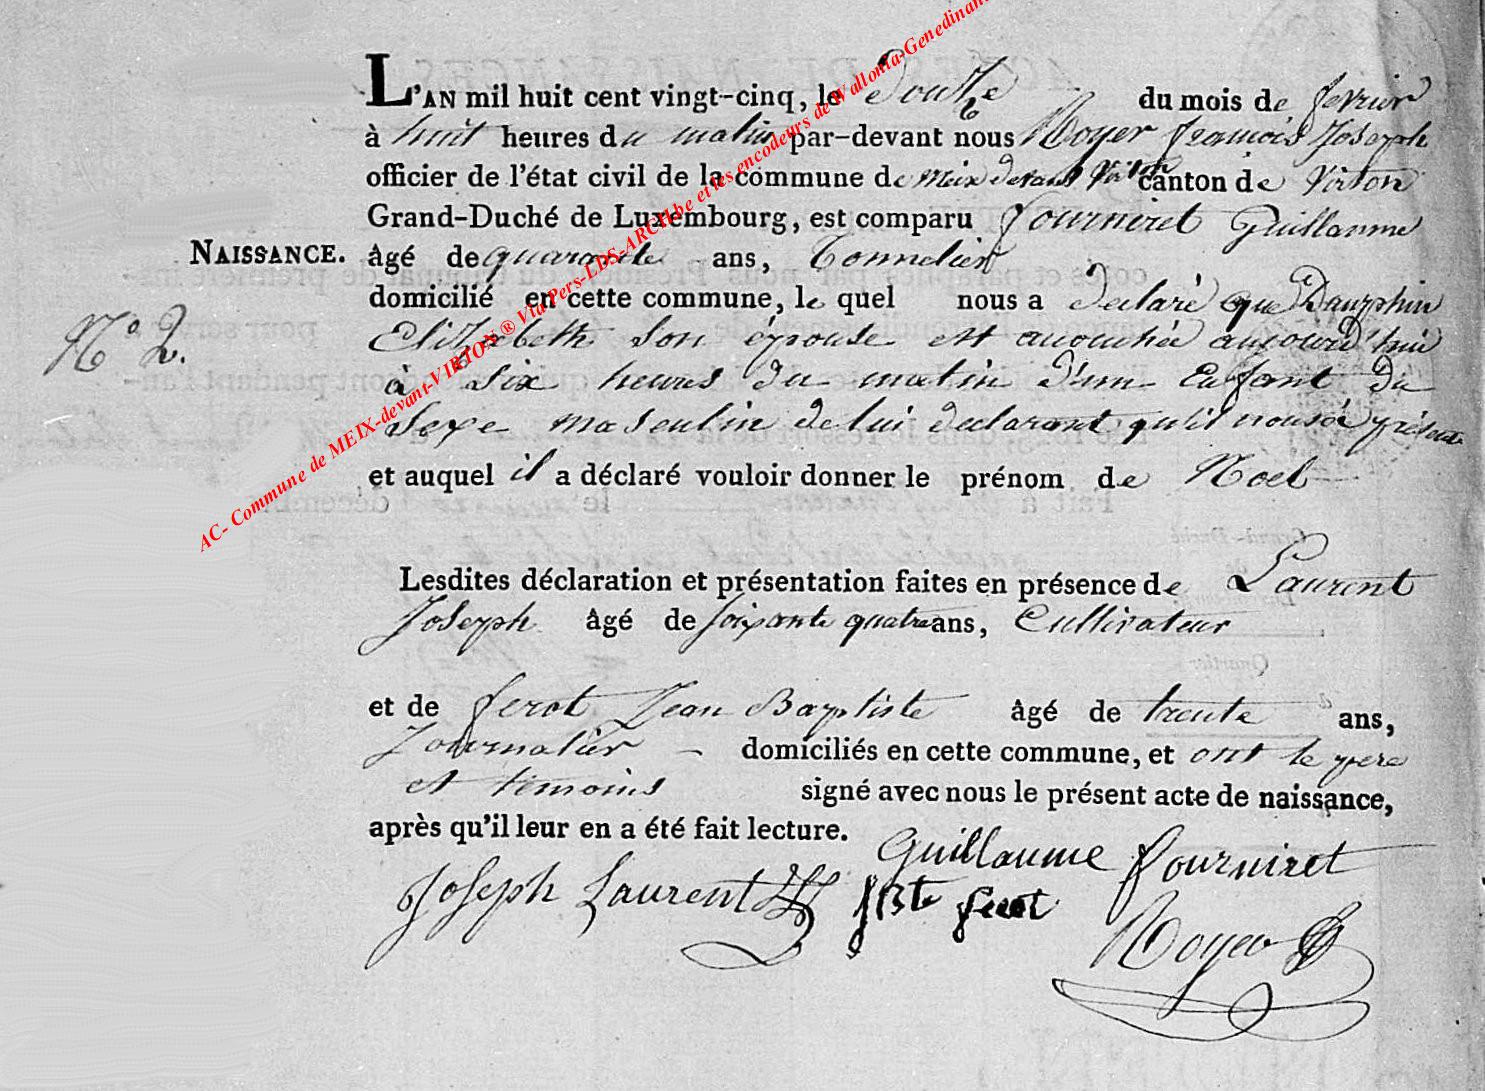 L'AN mil huit cent vingt-cinq, le Douze du mois de fevrier
à huit heures du matin par-devant nous Royer francois Joseph
officier de l'état civil de la commune de Meix devant Virton canton de Virton
Grand-Duché de Luxembourg, est comparu fourniret Guillaume
NAISSANCE. âgé de quarante ans, Tonnelier
domicilié en cette commune, le quel nous a déclaré que Dauphin
N.° 2. Elizabeth son épouse est accouchée aujourd'hui
à six heures du matin d'un Enfant du
Sexe masculin de lui declarant qu'il nous a présenté
et auquel il a déclaré vouloir donner le prénom de Noel
Lesdites déclaration et présentation faites en présence de Laurent
Joseph âgé de soixante quatre ans, Cultivateur
et de ferot Jean Baptiste âgé de trente ans,
Journalier – domiciliés en cette commune, et ont le pere
et temoins signé avec nous le présent acte de naissance,
après qu'il leur en a été fait lecture.
Guillaume fourniret
Joseph Laurent JBte ferot
Royer
AC- Commune de MEIX-devant-VIRTON ® Via Pers-LDS-ARCH.be et les encodeurs de Wallonia-Genedinant